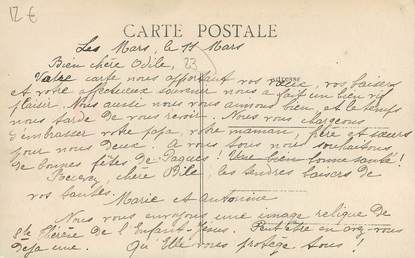 12 €
CARTE POSTALE
Les Mars, le 11 Mars
Bien chère Odile, 23
Votre carte nous apportant vos vœux, vos baisers
et votre affectueux souvenir nous a fait un bien vif
plaisir. Nous aussi nous vous aimons bien, et le temps
nous tarde de vous revoir. Nous vous chargeons
d'embrasser votre papa, votre maman, père et sœurs
pour nous deux. A vous tous nous souhaitons
de bonnes fêtes de Pâques! Une bien bonne santé!
Recevez, chère Odile, les tendres baisers de
vos tantes.
Marie et Antonine
Nous vous envoyons une image relique de
Ste Thérèse de l'Enfant-Jésus. Peut-être en avez-vous
déjà une. Qu'Elle vous protège tous!